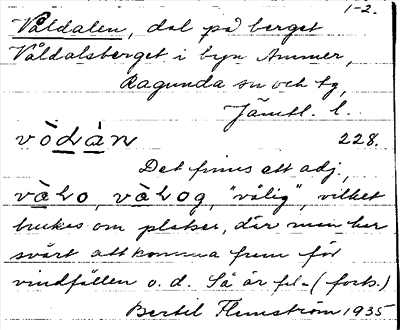 1-2.
Våldalen, dal på berget
Våldalsberget i byn Ammer,
Ragunda sn och tg,
Jämtl. l.
228.
Det finns ett adj.
"vålig", vilket
brukas om platser, där man har
svårt att komma fram för
vindfällen o. d. Så är fö- (forts.)
Bertil Flemström 1935